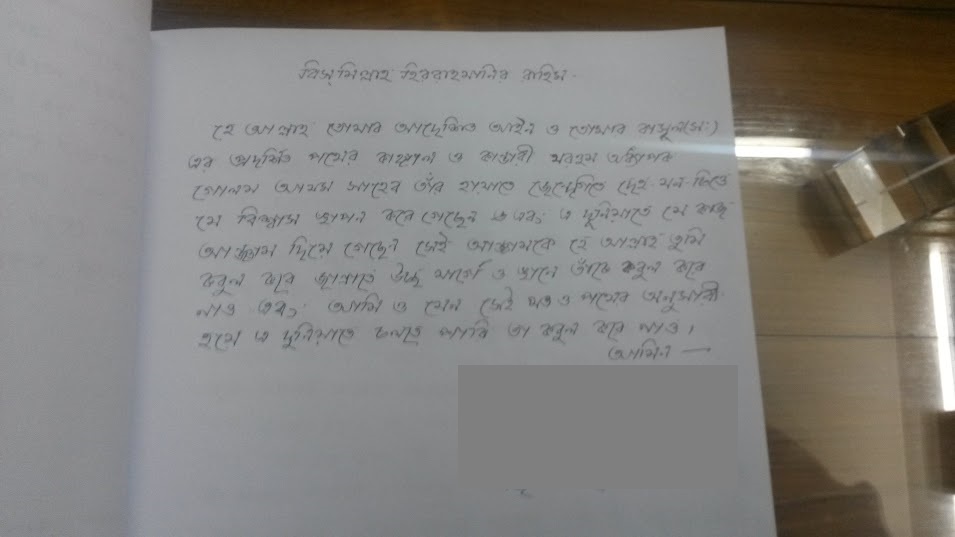 বিসমিল্লাহ হিররাহমানির রাহিম
হে আল্লাহ তোমার আদেশিত আইন ও তোমার রাসূল(সঃ)
এর প্রদর্শিত পথের ও কান্ডারী মরহুম অধ্যাপক
গোলাম আযম সাহেব তাঁর হায়াতে জিন্দেগিতে দেহ মন দিয়ে
যে বিশ্বাস স্থাপন করে গেছেন এবং এ দুনিয়াতে যে কাজ
আঞ্জাম দিয়ে গেছেন সেই আঞ্জামকে হে আল্লাহ তুমি
কবুল করে জান্নাতে উচ্চ মার্গে ও স্থানে তাঁকে কবুল করে
নাও এবং আমি ও যেন সেই মত ও পথের অনুসারী
হয়ে এ দুনিয়াতে চলতে পারি তা কবুল করে নাও।
আমিন —